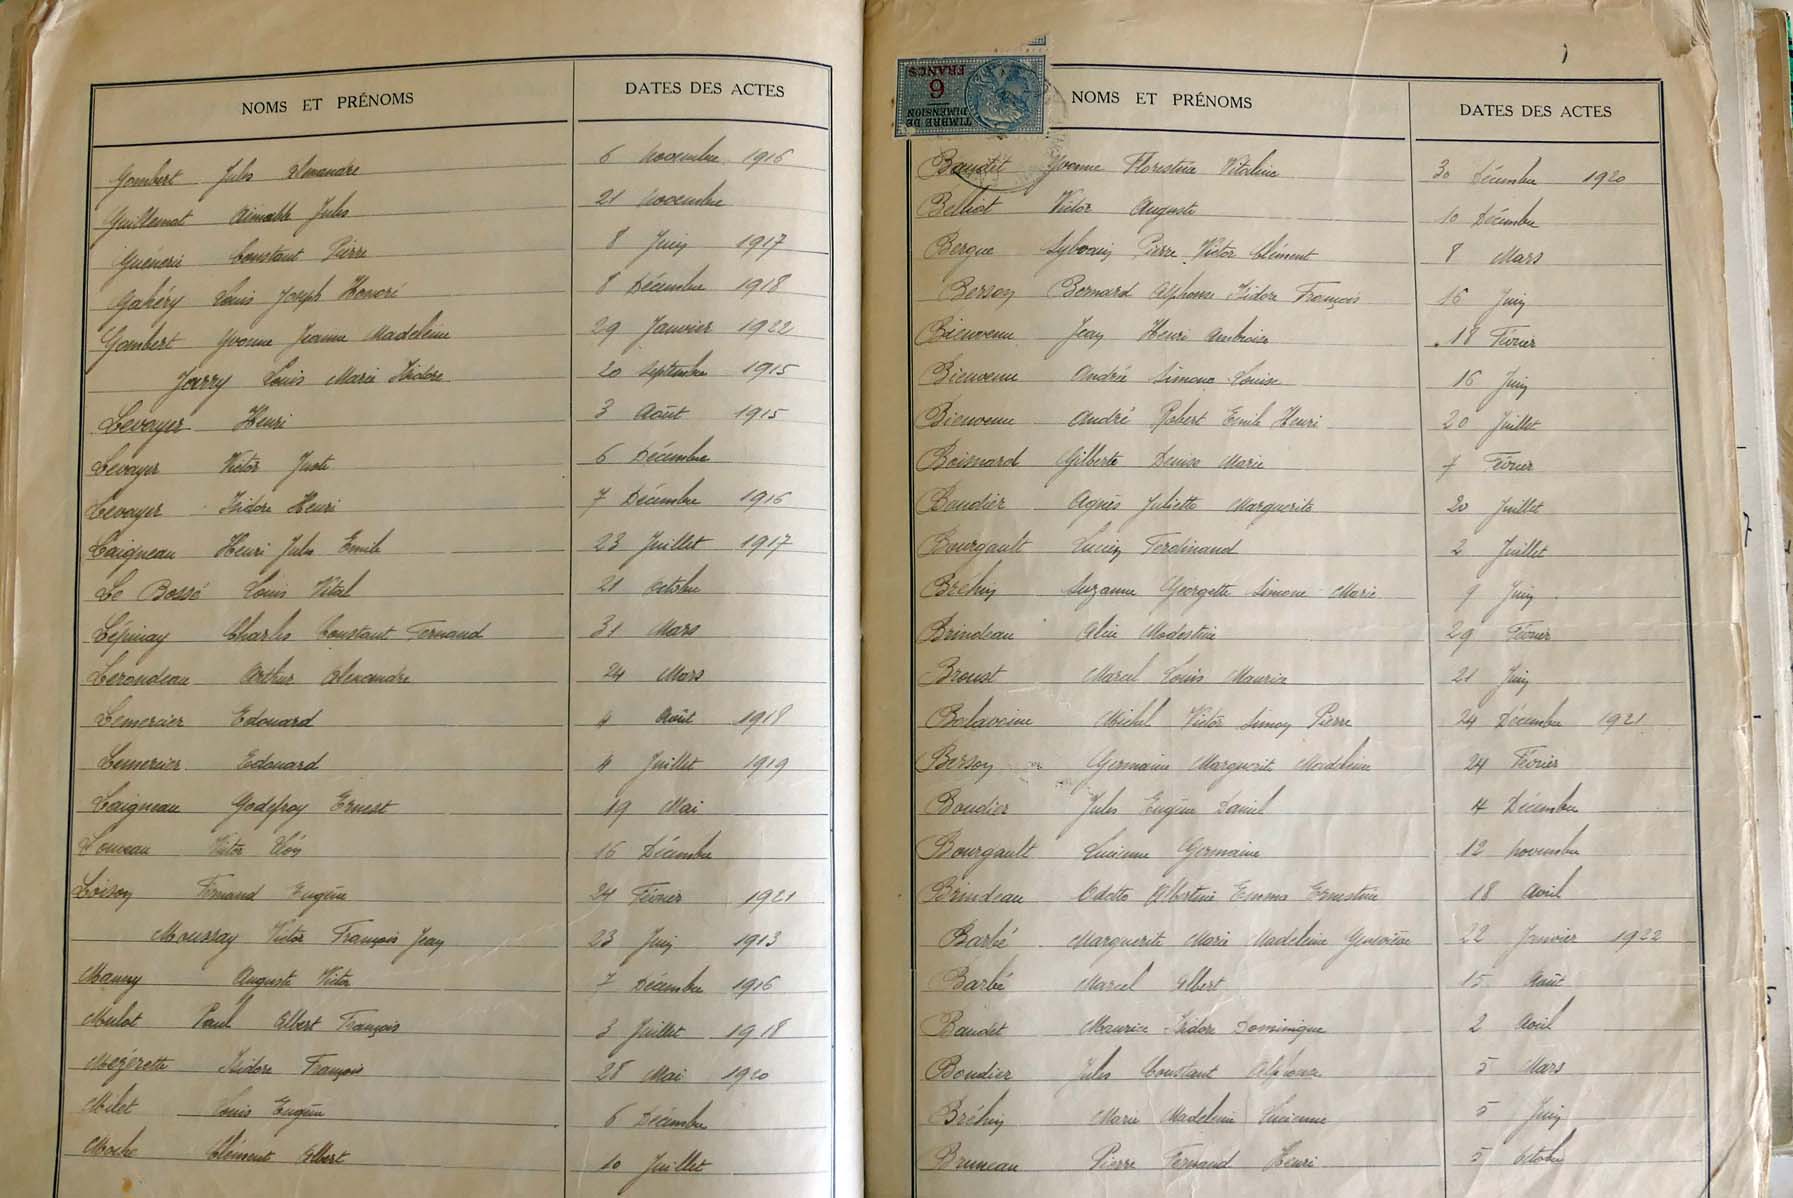 NOMS ET PRÉNOMS DATES DES ACTES
Gombert Jules Alexandre 6 Novembre 1916
Guillemot Aimable Jules 21 Novembre
Guénerie Constant Pierre 8 Juin 1917
Gahéry Louis Joseph Honoré 8 Décembre 1918
Gombert Yvonne Jeanne Madeleine 29 Janvier 1922
Jarry Louis Marie Isidore 20 Septembre 1915
Levayer Henri 3 Août 1915
Levayer Victor Juste 6 Décembre
Levayer Isidore Henri 7 Décembre 1916
Laigneau Henri Jules Emile 23 Juillet 1917
Le Bossé Louis Vital 21 Octobre
Lépinay Charles Constant Fernand 31 Mars
Lerondeau Arthur Alexandre 24 Mars
Lemercier Edouard 4 Août 1918
Lemercier Edouard 4 Juillet 1919
Laigneau Godefroy Ernest 19 Mai
Louveau Victor 16 Décembre
Loison Fernand Eugène 24 Février 1921
Moussay Victor François Jean 23 Juin 1913
Manny Auguste Victor 7 Décembre 1916
Mulot Paul Albert François 3 Juillet 1918
Mézerette Isidore François 28 Mai 1920
Milet Louis Eugène 6 Décembre
Moche Clément Albert 10 Juillet
TIMBRE DE DIMENSION
6 FRANCS
NOMS ET PRÉNOMS DATES DES ACTES
Baudet Yvonne Florestine Vitaline 30 Décembre 1920
Belliot Victor Auguste 10 Décembre
Bergue Sylvain Pierre Victor Clément 8 Mars
Berson Bernard Alphonse Isidore François 16 Juin
Bienvenu Jean Henri Ambroise 18 Février
Bienvenu Andrée Simone Louise 16 Juin
Bienvenu André Robert Emile Henri 20 Juillet
Boisnard Gilberte Denise Marie 7 Février
Boudier Agnès Juliette Marguerite 20 Juillet
Bourgault Lucien Ferdinand 2 Juillet
Bréhin Suzanne Georgette Simone Marie 9 Juin
Brindeau Alice Modestine 29 Février
Broust Marcel Louis Maurice 21 Juin
Balavoine Michel Victor Simon Pierre 24 Décembre 1921
Berson Germaine Marguerite Madeleine 24 Février
Boudier Jules Eugène Daniel 4 Décembre
Bourgault Lucienne Germaine 12 Novembre
Brindeau Odette Albertine Emma Ernestine 18 Avril
Barbé Marguerite Marie Madeleine Geneviève 22 Janvier 1922
Barbé Marcel Albert 15 Août
Baudet Maurice Isidore Dominique 2 Avril
Boudier Jules Constant Alphonse 5 Mars
Bréhin Marie Madeleine Lucienne 5 Juin
Bruneau Pierre Fernand Henri 5 Octobre